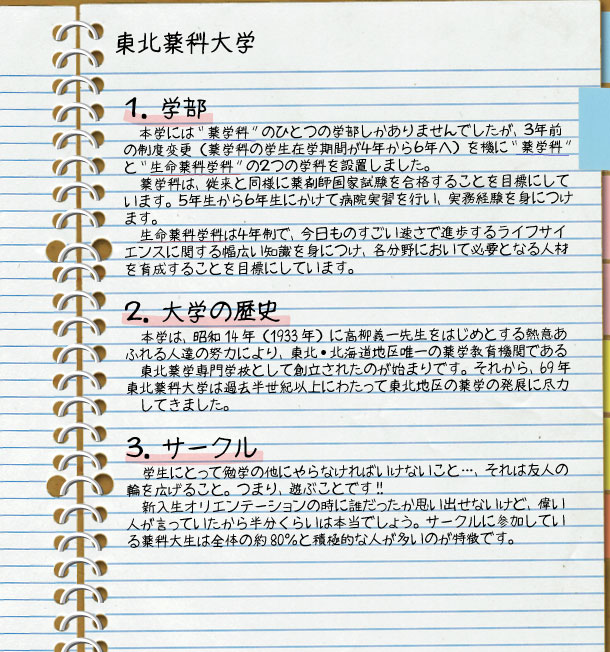 東北薬科大学
1. 学部
本学には“薬学科”のひとつの学部しかありませんでしたが、3年前
の制度変更（薬学科の学生在学期間が4年から6年へ）を機に“薬学科”
と“生命薬科学科”の2つの学科を設置しました。
薬学科は、従来と同様に薬剤師国家試験を合格することを目標にして
います。5年生から6年生にかけて病院実習を行い、実務経験を身につけ
ます。
生命薬科学科は4年制で、今日ものすごい速さで進歩するライフサイ
エンスに関する幅広い知識を身につけ、各分野において必要となる人材
を育成することを目標にしています。
2. 大学の歴史
本学は、昭和14年（1933年）に高柳義一先生をはじめとする熱意あ
ふれる人達の努力により、東北・北海道地区唯一の薬学教育機関である
東北薬学専門学校として創立されたのが始まりです。それから、69年
東北薬科大学は過去半世紀以上にわたって東北地区の薬学の発展に尽力
してきました。
3. サークル
学生にとって勉学の他にやらなければいけないこと…、それは友人の
輪を広げること。つまり、遊ぶことです!!
新入生オリエンテーションの時に誰だったか思い出せないけど、偉い
人が言っていたから半分くらいは本当でしょう。サークルに参加してい
る薬科大生は全体の約80%と積極的な人が多いのが特徴です。